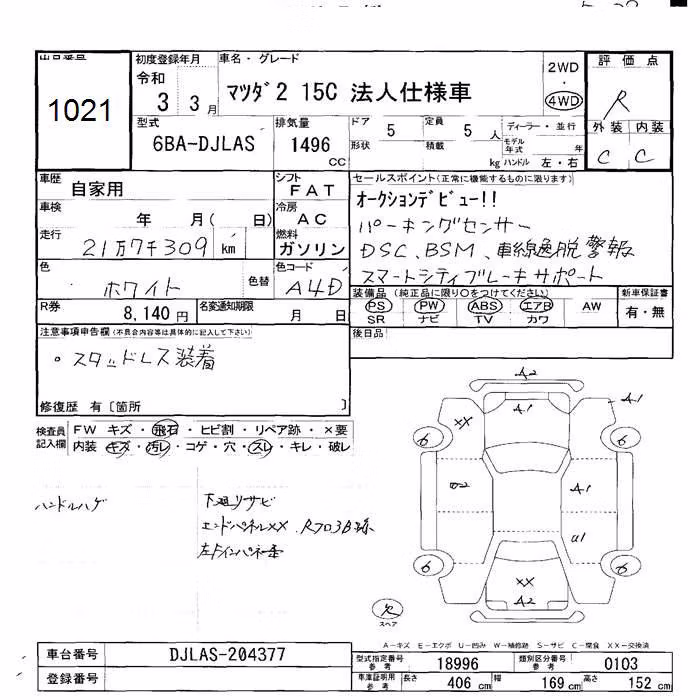 出品番号
1021
初度登録年月
令和
3 3月
車名・グレード
マツダ2 15C 法人仕様車
2WD
・
4WD
評価点
R
外装 内装
C C
型式
6BA-DJLAS
排気量
1496
CC
ドア
5
形状
定員
5 人
積載
kg
ディーラー・並行
モデル年式
年
ハンドル 左・右
車歴
自家用
シフト
FAT
車検
年 月( 日)
冷房
AC
走行
21万7千309 km
燃料
ガソリン
色
ホワイト
色替
色コード
A4D
R券
8,140 円
名変通知期限
月 日
セールスポイント(正常に機能するものに限ります)
オークションデビュー!!
パーキングセンサー
DSC、BSM、車線逸脱警報
スマートシティブレーキサポート
装備品 (純正品に限り○をつけてください)
PS PW ABS エアB AW
SR ナビ TV カワ
新車保証書
有・無
後日品
注意事項申告欄(不具合内容等は具体的に記入して下さい)
・スタッドレス装着
修復歴 有〔箇所 〕
検査員記入欄
FW キズ・飛石・ヒビ割・リペア跡・×要
内装 キズ・汚レ・コゲ・穴・スレ・キレ・破レ
ハンドルハゲ
下廻りサビ
エンドパネルXX
A2
A1
A1
XX
6
6
A1
U1
6
6
XX
A2
欠
スペア
A－キズ E－エクボ U－凹み W－補修跡 S－サビ C－腐食 XX－交換済
車台番号
DJLAS-204377
登録番号
型式指定番号
参考
18996
類別区分番号
参考
0103
車庫証明用
参考
長さ 406 cm 幅 169 cm 高さ 152 cm